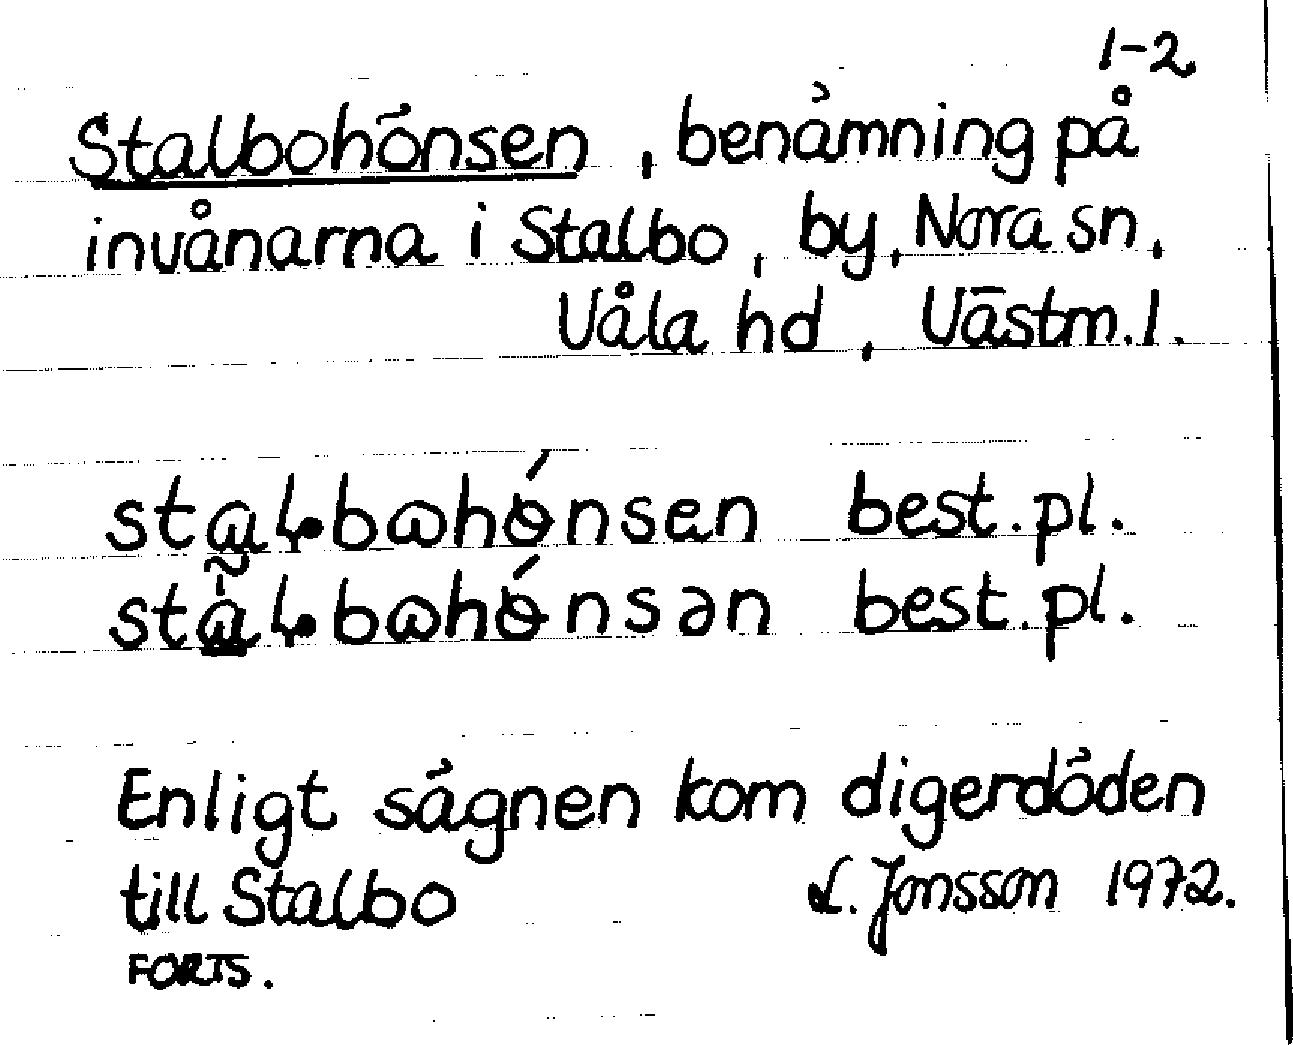 1-2
Stalbohönsen, benämning på
invånarna i Stalbo, by, Nora sn,
Våla hd, Västm. l.
best. pl.
best. pl.
Enligt sägnen kom digerdöden
till Stalbo L. Jonsson 1972.
FORTS.